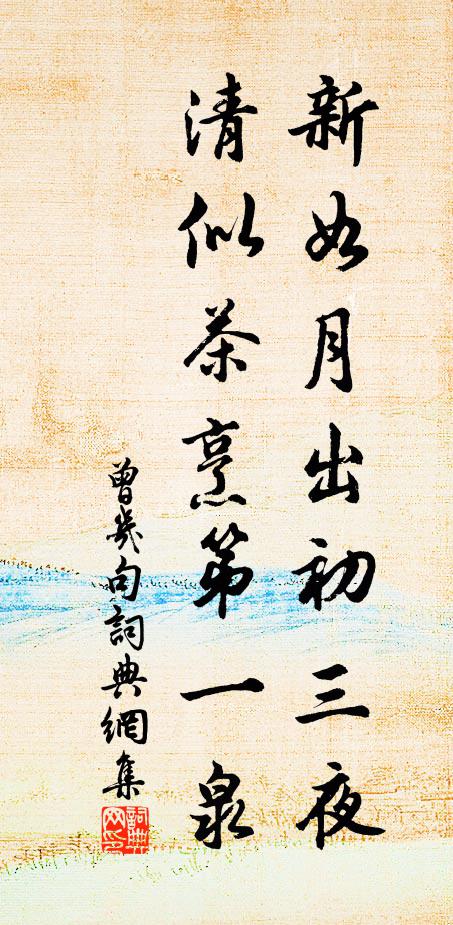 新如月出初三夜
清似茶烹第一泉
曾幾句詞典網集
詞典网印